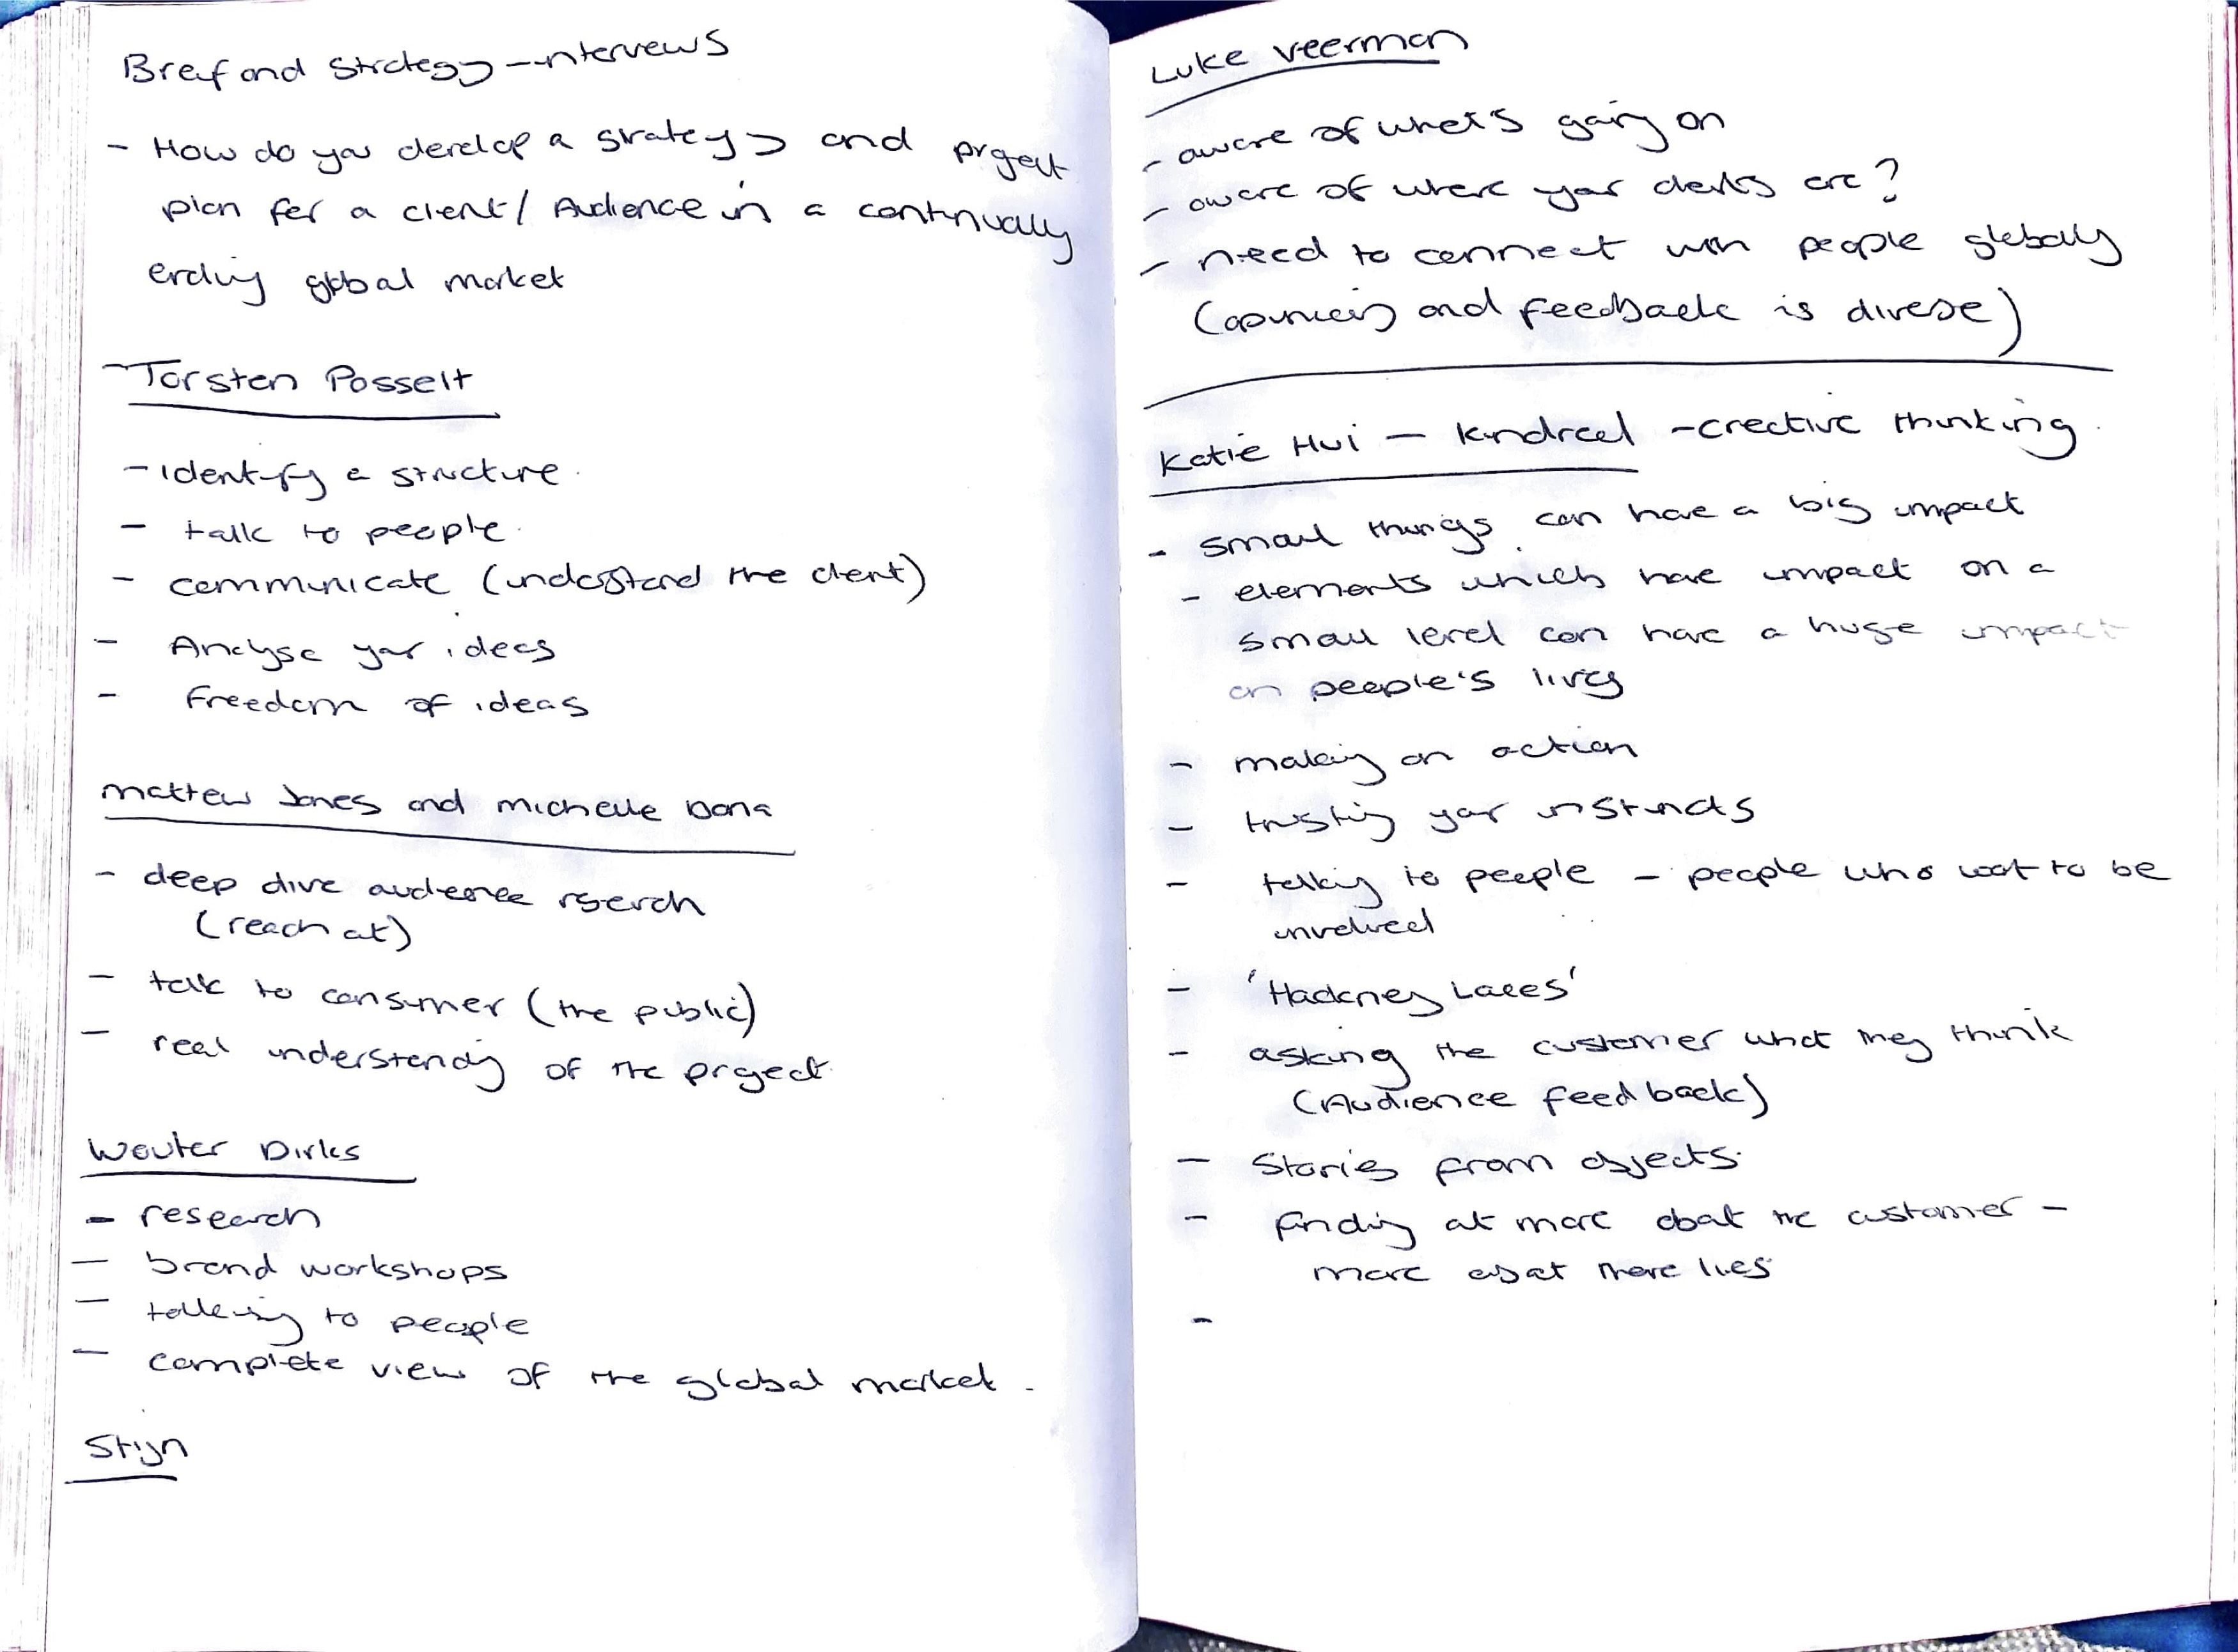 Breif and Strategy - interviews
- How do you develop a strategy and project
plan for a client / Audience in a continually
evolving global market
- Torsten Posselt
- identify a structure
- talk to people.
- communicate (understand the client)
- Analyse your ideas
- Freedom of ideas
Mattew Jones and Michelle Dona
- deep dive audience research
(reach out)
- talk to consumer (the public)
- real understanding of the project
Wouter Dirks
- research
- brand workshops
- talking to people
- complete view of the global market.
Stijn
Luke Veerman
- aware of what's going on
- aware of where your clients are?
- need to connect with people globally
(opinions and feedback is diverse)
Katie Hui - Kindred - creative thinking
- small things can have a big impact
- elements which have impact on a
small level can have a huge impact
on people's lives
- making an action
- trusting your instincts
- talking to people - people who want to be
involved
- 'Hackney Laces'
- asking the customer what they think
(Audience feedback)
- Stories from objects.
- finding out more about the customer -
more about there lies
-